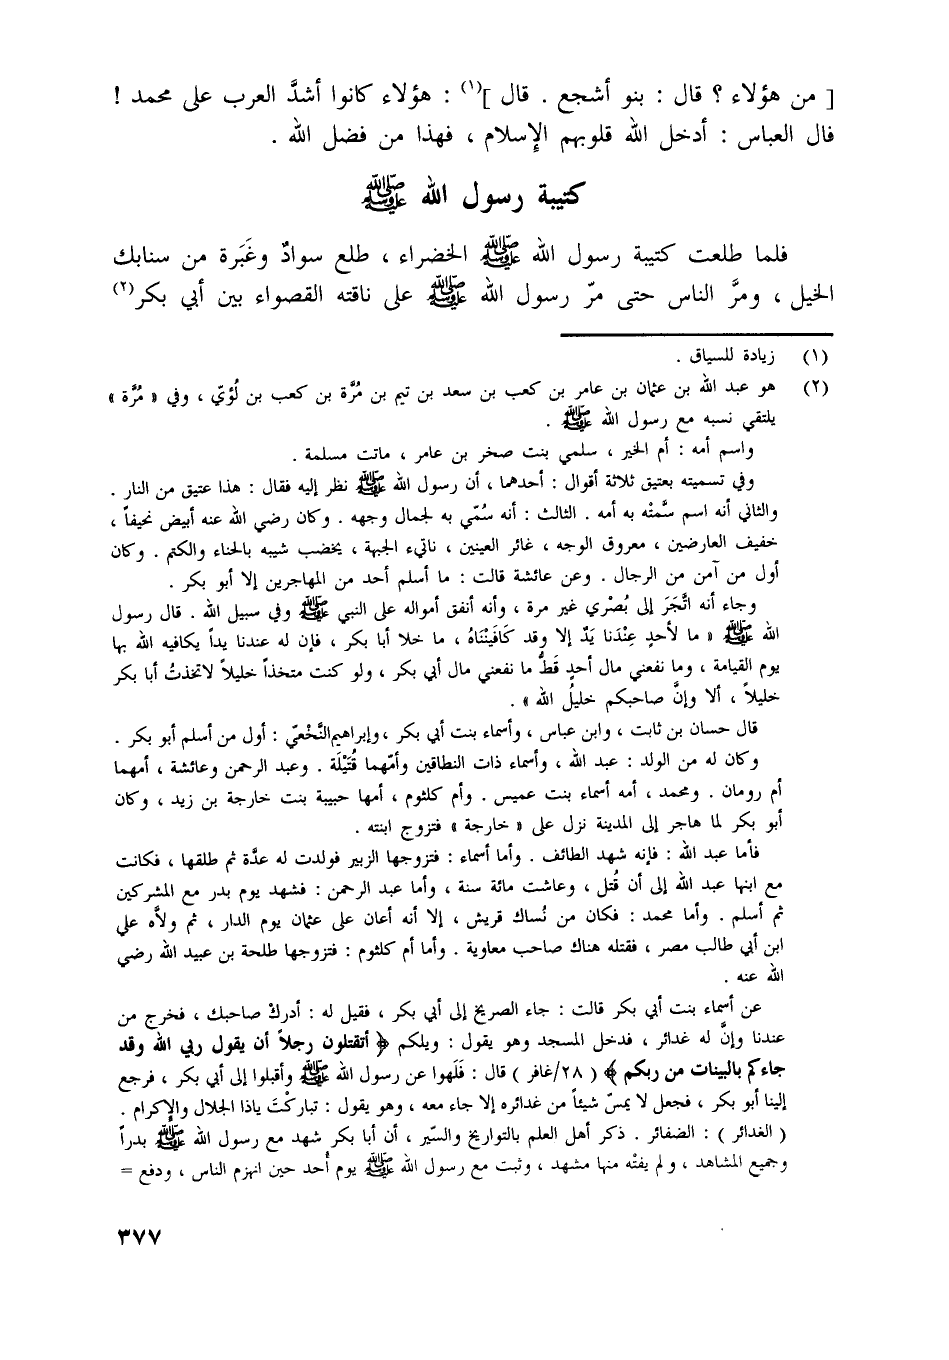 [ من هؤلاء ؟ قال : بنو أشجع . قال ](١) : هؤلاء كانوا أشدَّ العرب على محمد !
فال العباس : أدخل الله قلوبهم الإسلام ، فهذا من فضل الله .
كتيبة رسول الله ﷺ
فلما طلعت كتيبة رسول الله ﷺ الخضراء ، طلع سوادٌ وغَبَرة من سنابك
الخيل ، ومرَّ الناس حتى مرّ رسول الله ﷺ على ناقته القصواء بين أبي بكر(٢)
(١) زيادة للسياق .
(٢) هو عبد الله بن عثمان بن عامر بن كعب بن سعد بن تيم بن مُرَّة بن كعب بن لُؤيّ ، وفي « مُرَّة »
يلتقي نسبه مع رسول الله ﷺ .
واسم أمه : أم الخير ، سلمي بنت صخر بن عامر ، ماتت مسلمة .
وفي تسميته بعتيق ثلاثة أقوال : أحدهما ، أن رسول الله ﷺ نظر إليه فقال : هذا عتيق من النار .
والثاني أنه اسم سمَّتْه به أمه . الثالث : أنه سُمّي به لجمال وجهه . وكان رضي الله عنه أبيض نحيفاً ،
خفيف العارضين ، معروق الوجه ، غائر العينين ، ناتيء الجبهة ، يخضب شيبه بالحناء والكتم . وكان
أول من آمن من الرجال . وعن عائشة قالت : ما أسلم أحد من المهاجرين إلا أبو بكر .
وجاء أنه اتَّجَرَ إلى بُصْري غير مرة ، وأنه أنفق أمواله على النبي ﷺ وفي سبيل الله . قال رسول
الله ﷺ « ما لأحدٍ عِنْدَنا يَدٌ إلا وقد كَافَيْنَاهُ ، ما خلا أبا بكر ، فإن له عندنا يداً يكافيه الله بها
يوم القيامة ، وما نفعني مال أحدٍ قَطُّ ما نفعني مال أبي بكر ، ولو كنت متخذاً خليلاً لاتخذتُ أبا بكر
خليلاً ، ألا وإنَّ صاحبكم خليلُ الله » .
قال حسان بن ثابت ، وابن عباس ، وأسماء بنت أبي بكر ، وإبراهيم النَّخْعيّ : أول من أسلم أبو بكر .
وكان له من الولد : عبد الله ، وأسماء ذات النطاقين وأمّهما قُتَيْلَة . وعبد الرحمن وعائشة ، أمهما
أم رومان . ومحمد ، أمه أسماء بنت عميس . وأم كلثوم ، أمها حبيبة بنت خارجة بن زيد ، وكان
أبو بكر لما هاجر إلى المدينة نزل على « خارجة » فتزوج ابنته .
فأما عبد الله : فإنه شهد الطائف . وأما أسماء : فتزوجها الزبير فولدت له عدَّة ثم طلقها ، فكانت
مع ابنها عبد الله إلى أن قُتل ، وعاشت مائة سنة ، وأما عبد الرحمن : فشهد يوم بدر مع المشركين
ثم أسلم . وأما محمد : فكان من نُساك قريش ، إلا أنه أعان على عثمان يوم الدار ، ثم ولاَّه علي
ابن أبي طالب مصر ، فقتله هناك صاحب معاوية . وأما أم كلثوم : فتزوجها طلحة بن عبيد الله رضي
الله عنه .
عن أسماء بنت أبي بكر قالت : جاء الصريخ إلى أبي بكر ، فقيل له : أدركْ صاحبك ، فخرج من
عندنا وإنَّ له غدائر ، فدخل المسجد وهو يقول : ويلكم ﴿ أتقتلون رجلاً أن يقول ربي الله وقد
جاءكم بالبينات من ربكم ﴾ ( ٢٨/غافر ) قال : فَلَهوا عن رسول الله ﷺ وأقبلوا إلى أبي بكر ، فرجع
إلينا أبو بكر ، فجعل لا يمسّ شيئاً من غدائره إلا جاء معه ، وهو يقول : تباركْتَ ياذا الجلال والإكرام .
( الغدائر ) : الضفائر . ذكر أهل العلم بالتواريخ والسّير ، أن أبا بكر شهد مع رسول الله ﷺ بدراً
وجميع المشاهد ، ولم يفتْه منها مشهد ، وثبت مع رسول الله ﷺ يوم أُحد حين انهزم الناس ، ودفع =
٣٧٧